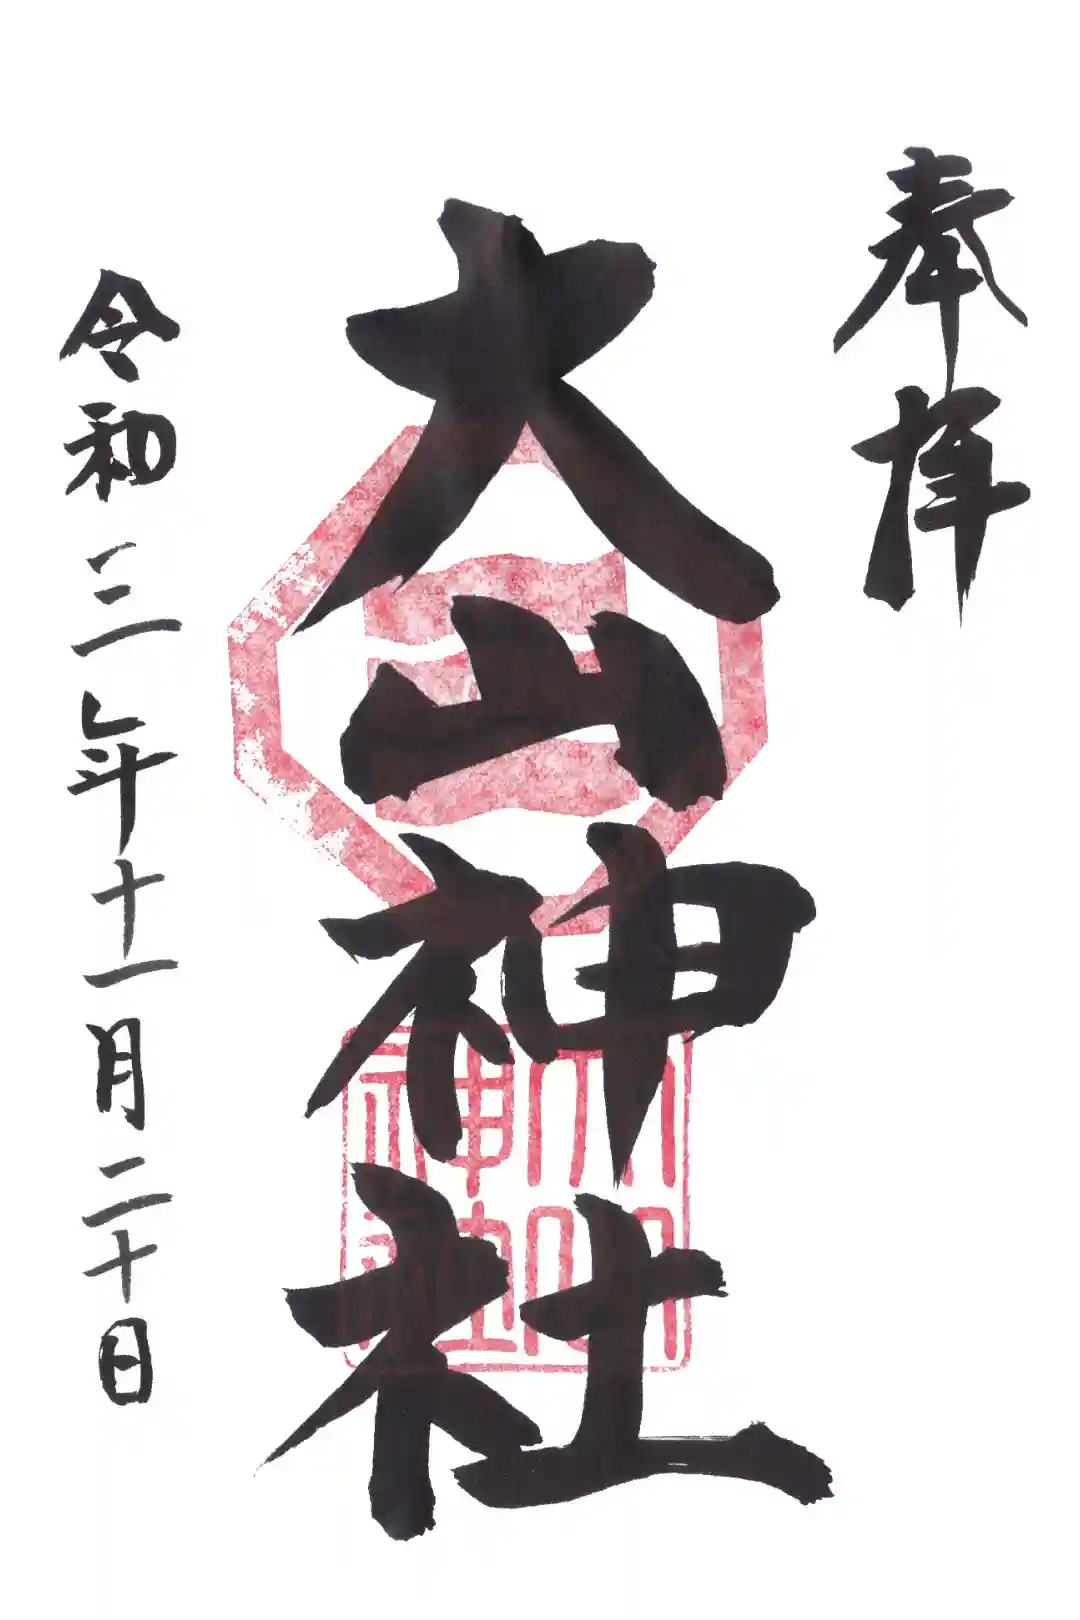 奉拝
大山神社
令和三年十一月二十日